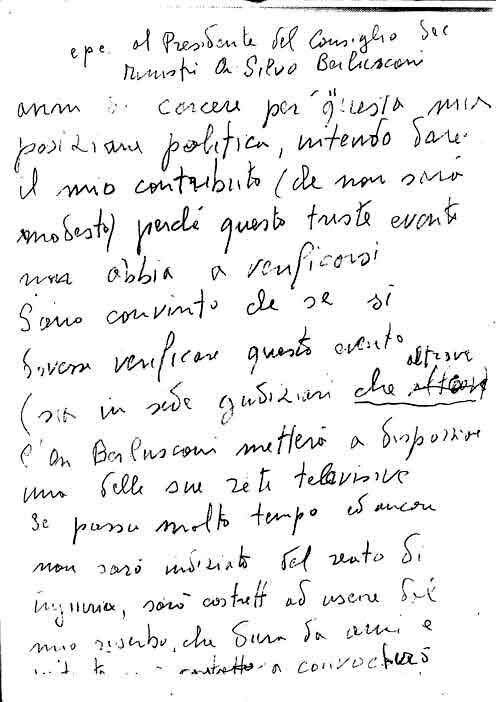 e p.c. al Presidente del Consiglio dei
Ministri On Silvio Berlusconi
anni di carcere per questa mia
posizione politica, intendo dare
il mio contributo (che non sarà
modesto) perché questo triste evento
non abbia a verificarsi
Sono convinto che se si
dovesse verificare questo evento
(sia in sede giudiziari che altrove
l'on Berlusconi metterà a disposizione
una delle sue reti televisive
Se passa molto tempo ed ancora
non sarò indiziato del reato di
ingiuria, sarò costretto ad uscire dal
mio riserbo, che dura da anni e
a convocherò